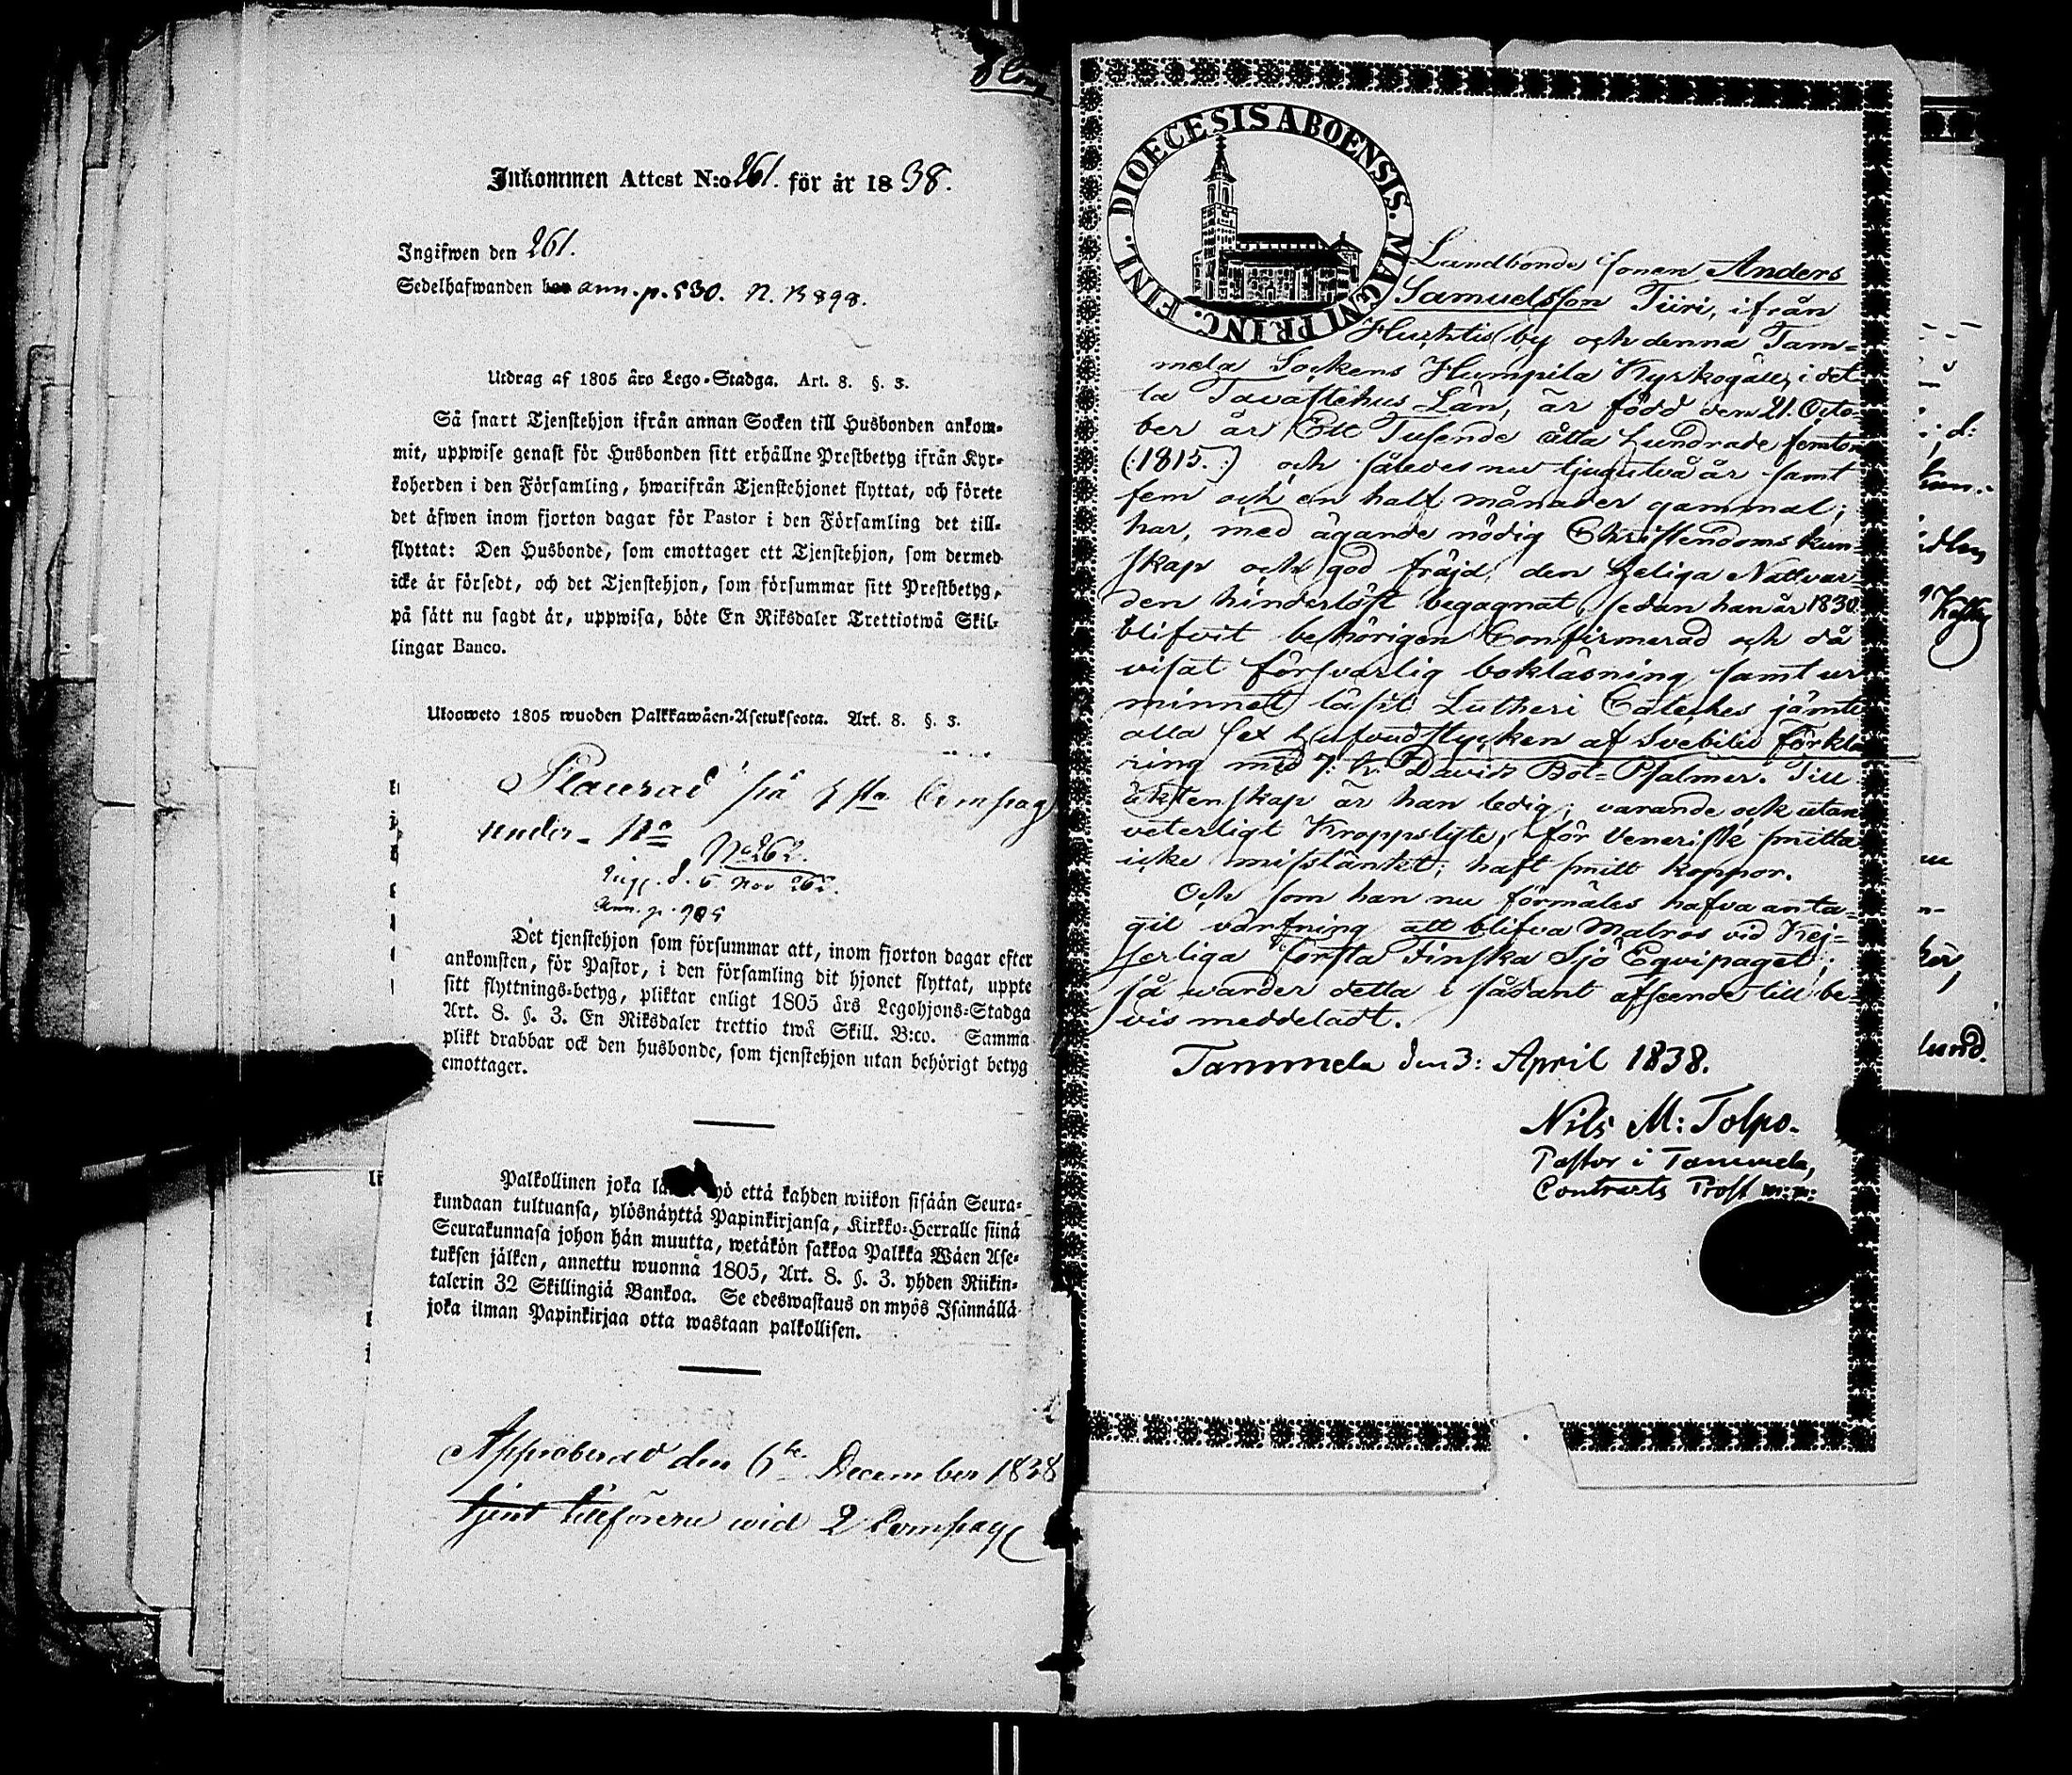 Inkommen Attest N:o 261. för år 1838.
Ingifwen den 261.
Sedelhafwanden ann. p. 530. N. B 898.
Utdrag af 1805 års Lego-Stadga. Art. 8. §. 3.
Så snart Tjenstehjon ifrån annan Socken till Husbonden ankom-
mit, uppwise genast för Husbonden sitt erhållne Prestbetyg ifrån Kyr-
koherden i den Församling, hwarifrån Tjenstehjonet flyttat, och förete
det äfwen inom fjorton dagar för Pastor i den Församling det till-
flyttat: Den Husbonde, som emottager ett Tjenstehjon, som dermed
icke är försedt, och det Tjenstehjon, som försummar sitt Prestbetyg,
på sätt nu sagdt är, uppwisa, böte En Riksdaler Trettiotwå Skil-
lingar Banco.
Uloosweto 1805 wuoden Palkkawäen-Asetuksesta. Art. 8. §. 3.
Placerad på Compag
under N:o
No 262.
Ing. d. 6 Nov 262.
Ann. p. 905
Det tjenstehjon som försummar att, inom fjorton dagar efter
ankomsten, för Pastor, i den församling dit hjonet flyttat, uppte
sitt flyttnings-betyg, pliktar enligt 1805 års Legohjons-Stadga
Art. 8. §. 3. En Riksdaler trettio twå Skill. B:co. Samma
plikt drabbar ock den husbonde, som tjenstehjon utan behörigt betyg
emottager.
Palkollinen joka yö että kahden wiikon sisään Seura-
kundaan tultuansa, ylösnäyttä Papinkirjansa, Kirkko-Herralle siinä
Seurakunnasa johon hän muutta, wetäkön sakkoa Palkka Wäen Ase-
tuksen jälken, annettu wuonna 1805, Art. 8. §. 3. yhden Riikin-
talerin 32 Skillingiä Bankoa. Se edeswastaus on myös Isännällä
joka ilman Papinkirjaa otta wastaan palkollisen.
Approberad den 6te December 1838
tjenst tillförene wid 2 Compag
DIOECESIS ABOENSIS. MAGNI PRINC. FINL.
Landbonde sonen Anders
Samuelsson Tiiri, ifrån
Huhtis by och denna Tam-
mela Sockens Humpila Kyrkogäll, i det-
ta Tavastehus Län, är född den 21. Octo-
ber år Ett Tusende åtta hundrade femton
(:1815.:) och således nu tjugutvå år samt
fem och en half månader gammal;
har, med ägande nödig Christendoms kun-
skap och god fräjd, den heliga Nattvar-
den hinderlöst begagnat, sedan han år 1830
blifvit behörigen Confirmerad och då
visat försvarlig bokläsning samt ur
minnet läsit Lutheri Cateches jämte
alla sex hufvudstycken af Svebilii Förkla-
ring med 7: k. Davids Bot-Psalmer. Till
äktenskap är han ledig; varande ock utan
veterligt Kroppslyte, för Venerisk smitta
icke misstänkt; haft smitt koppor.
Och som han nu förmäles hafva anta-
git värfning att blifva Matros vid Kej-
serliga första Finska Sjö Eqvipaget;
så warder detta i sådant afseende till be-
vis meddeladt.
Tammela den 3: April 1838.
Nils M: Tolpo.
Pastor i Tammela,
Contracts Prost m:p: